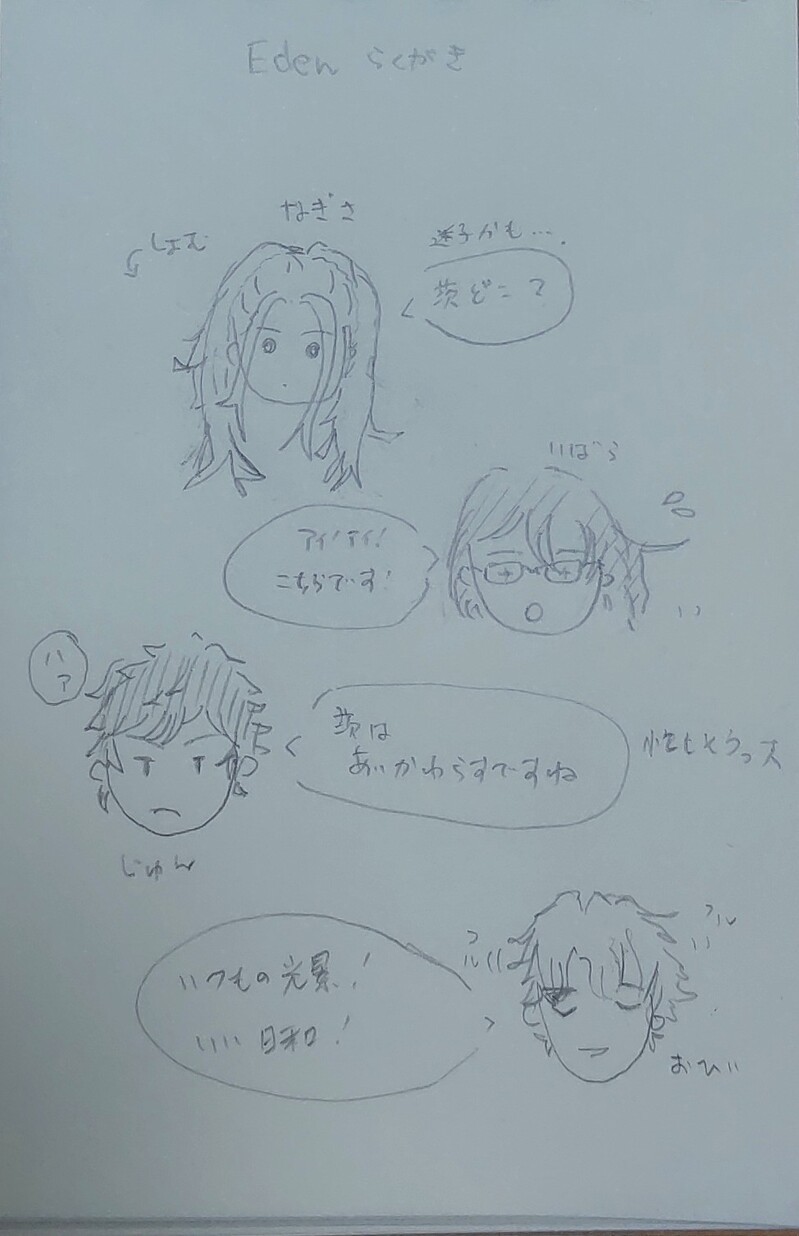 Eden らくがき
なぎさ
しょむ
迷子かも….
茨どこ?
いばら
アイ!アイ!
こちらです!
ハァ
茨は
あいかわらずですね
じゅん
フル
フル
いつもの光景!
いい日和!
おひい